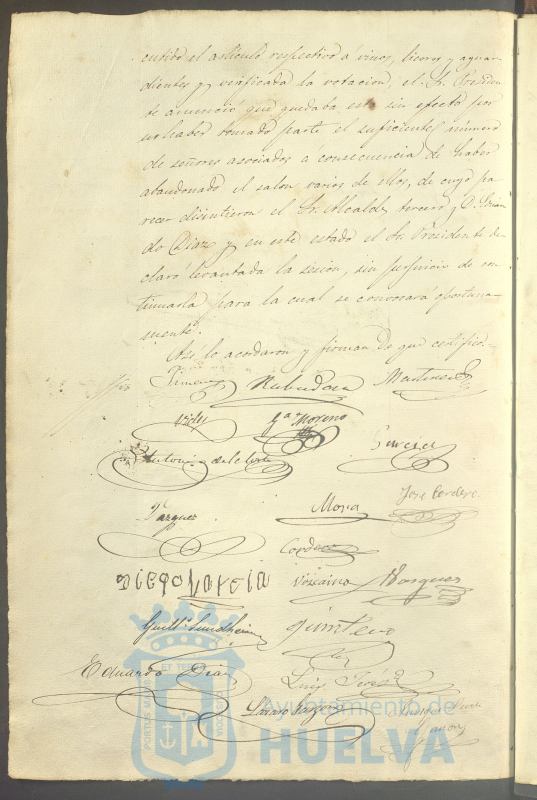 cutido el artículo respectivo á vinos, licores y aguar-
dientes y verificada la votacion, el Sr. Presiden-
te anunció que quedaba esta sin efecto por
no haber tomado parte el suficiente número
de señores asociados á consecuencia de haber
abandonado el salon varios de ellos, de cuyo pa-
recer disintieron el Sr. Alcalde tercero y D.
do Diaz y en este estado el Sr. Presidente de-
claró levantada la sesion, sin perjuicio de con-
tinuarla para la cual se convocará oportuna-
mente.
Así lo acordaron y firman de que certifico.
Jimenez Martinez
Gª Moreno
Garcia
Antonio de la Corte
Vazquez Mora José Cordero
DIEGO GARCIA Vizcaino Vazquez
Guillº Sundheim Quintero
Eduardo Diaz
Luis
Lazaro
PORTUS MARIS ET TERRAE CUSTODIA
Ayuntamiento de
HUELVA